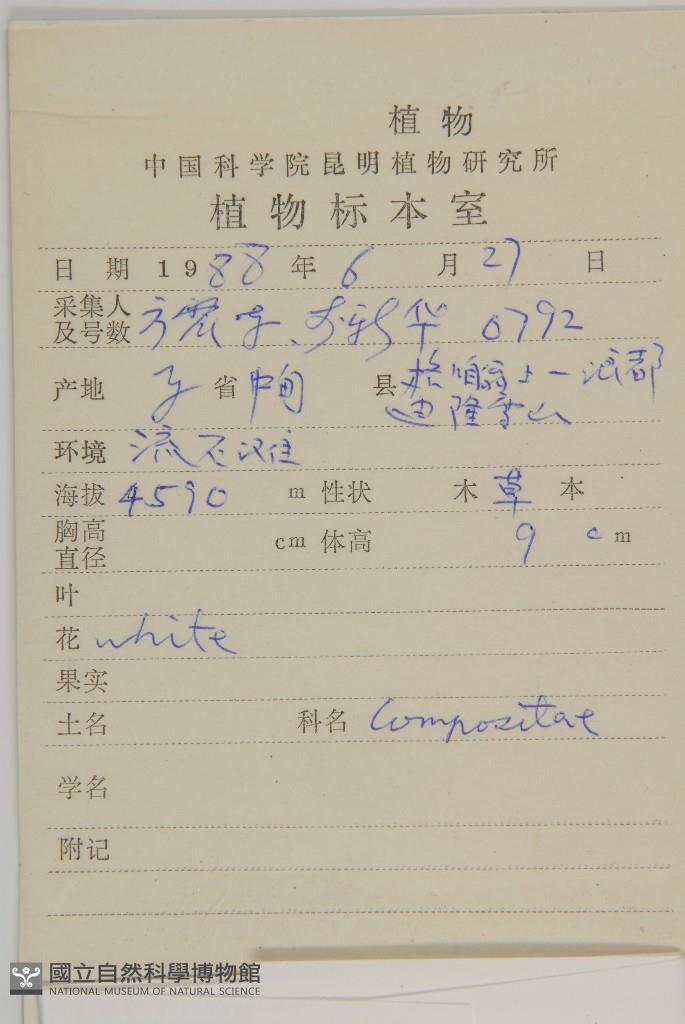 植物
中国科学院昆明植物研究所
植物标本室
日 期 1988 年 6 月 27 日
采集人
及号数 方震东、 0792
产地 省 中甸 县 格咱翁上一浪都
雪山
环境 流石
海拔 4590 m 性状 木 草 本
胸高
直径 cm 体高 9 cm
叶
花 white
果实
土名 科名 Compositae
学名
附记
國立自然科學博物館
NATIONAL MUSEUM OF NATURAL SCIENCE